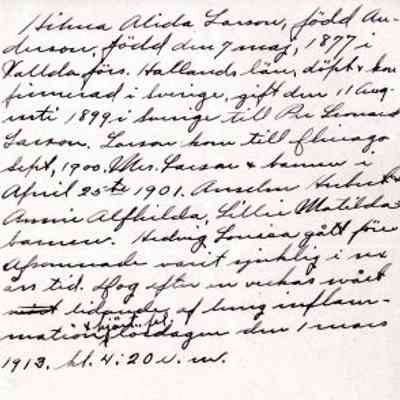 Hilma Alida Larson, född An-
derson, född den 7 maj, 1877 i
Vallda förs. Hallands län, döpt & kon
firmerad i Sverige, gift den 11 Aug-
usti 1899 i Sverige till Per Leonard
Larson. Larson kom till Chicago
Sept, 1900. Mrs. Larson & barnen i
April 25te 1901. Anselm Hubert &
Annie Alfhilda, Lillie Matilda
barnen. Hedvig Lovisa gått före
Afsomnade varit sjuklig i
års tid. Dog efter en veckas svårt
lidande af lung inflam-
mation & hjärt. fel lördagen den 1 mars
1913. kl. 4:20 e. m.